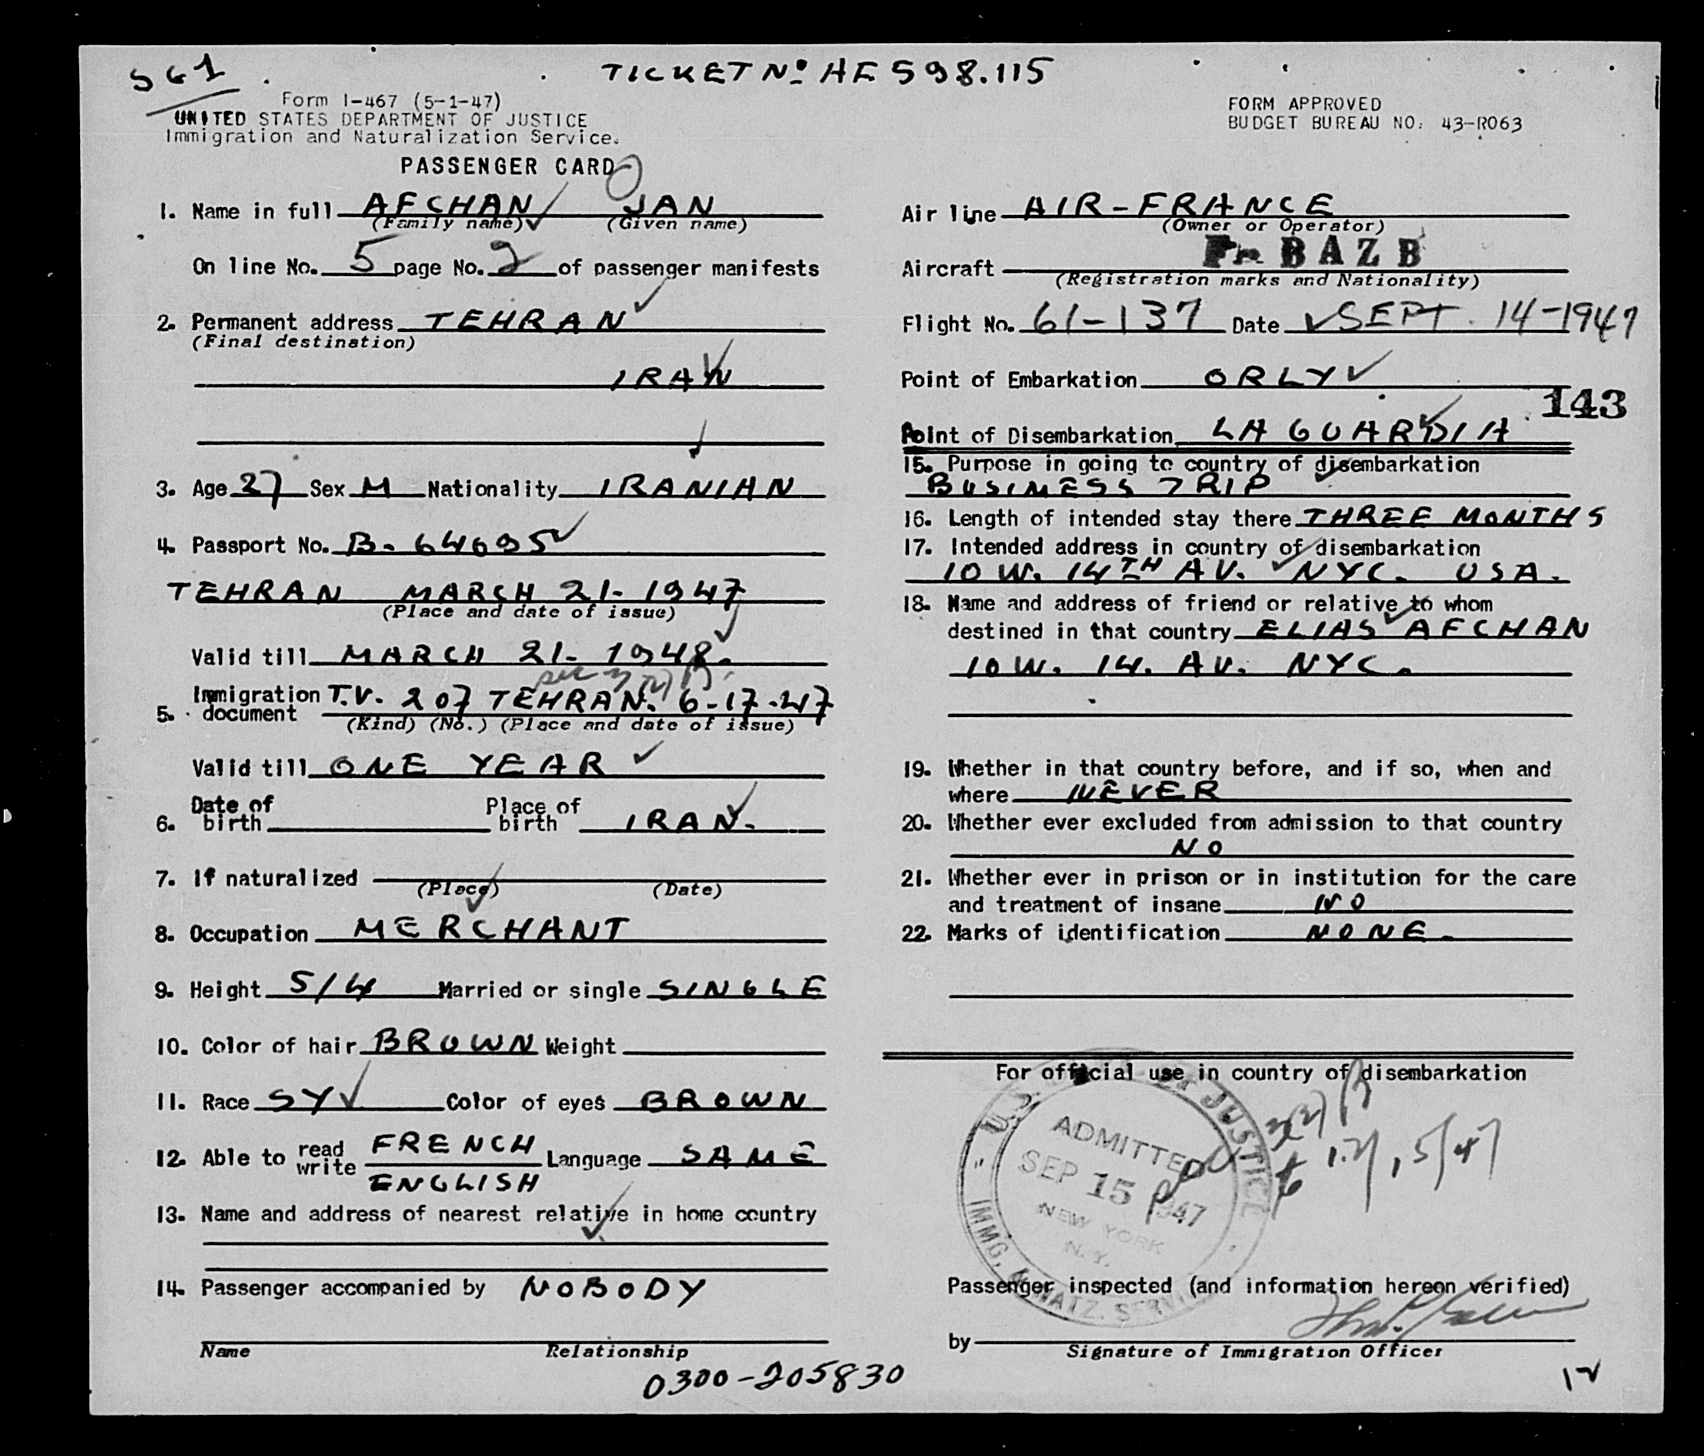 561
TICKET Nº AF 598.115
Form I-467 (5-1-47)
UNITED STATES DEPARTMENT OF JUSTICE
Immigration and Naturalization Service.
PASSENGER CARD
1. Name in full AFCHAN JAN
(Family name) (Given name)
On line No. 5 page No. 2 of passenger manifests
2. Permanent address TEHRAN
(Final destination)
IRAN
3. Age 27 Sex M Nationality IRANIAN
4. Passport No. B. 64695
TEHRAN MARCH 21- 1947
(Place and date of issue)
Valid till MARCH 21- 1948.
5. Immigration document T.V. 207 TEHRAN. 6-17-47
(Kind) (No.) (Place and date of issue)
Valid till ONE YEAR
6. Date of birth Place of birth IRAN.
7. If naturalized
(Place) (Date)
8. Occupation MERCHANT
9. Height 5/4 Married or single SINGLE
10. Color of hair BROWN Weight
11. Race SY Color of eyes BROWN
12. Able to read write FRENCH ENGLISH Language SAME
13. Name and address of nearest relative in home country
14. Passenger accompanied by NOBODY
Name Relationship
0300-205830
FORM APPROVED
BUDGET BUREAU NO. 43-R063
Air line AIR-FRANCE
(Owner or Operator)
Aircraft BAZB
(Registration marks and Nationality)
Flight No. 61-137 Date SEPT. 14-1947
Point of Embarkation ORLY
143
Point of Disembarkation LA GUARDIA
15. Purpose in going to country of disembarkation
BUSINESS TRIP
16. Length of intended stay there THREE MONTHS
17. Intended address in country of disembarkation
10 W. 14TH AV. NYC. USA.
18. Name and address of friend or relative to whom
destined in that country ELIAS AFCHAN
10 W. 14. AV. NYC.
19. Whether in that country before, and if so, when and
where NEVER
20. Whether ever excluded from admission to that country
NO
21. Whether ever in prison or in institution for the care
and treatment of insane NO
22. Marks of identification NONE.
For official use in country of disembarkation
ADMITTED
SEP 15 1947
NEW YORK
N.Y.
Passenger inspected (and information hereon verified)
by
Signature of Immigration Officer
12